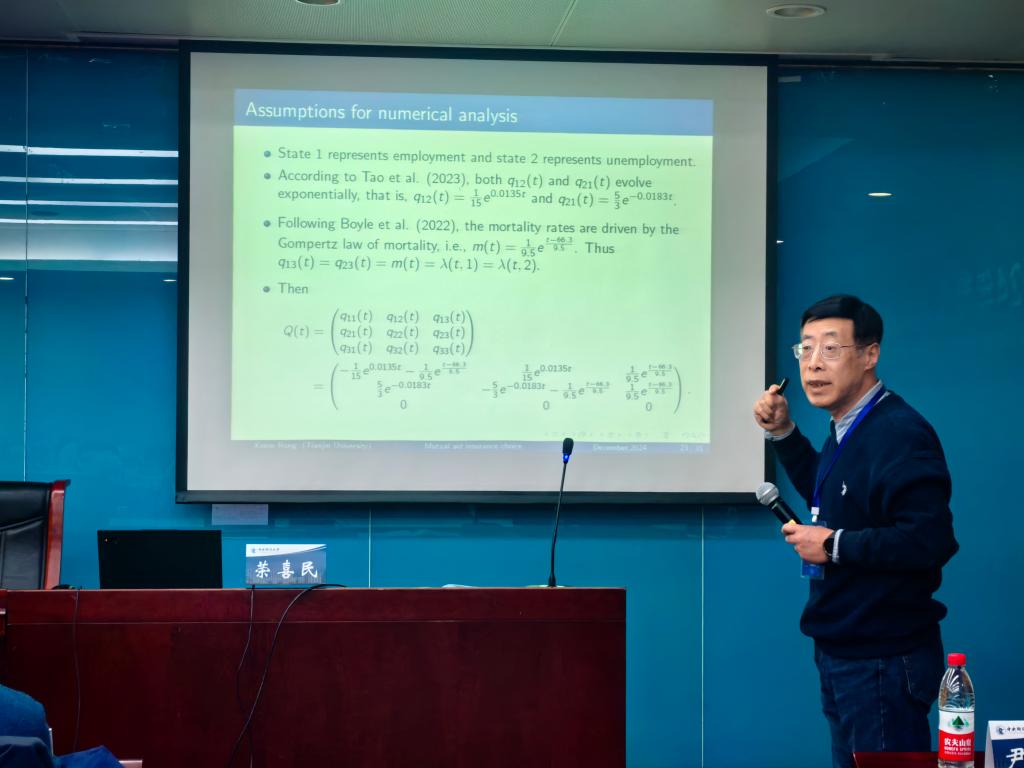 Assumptions for numerical analysis
• State 1 represents employment and state 2 represents unemployment.
• According to Tao et al. (2023), both q₁₂(t) and q₂₁(t) evolve
exponentially, that is, q₁₂(t) = 1/15 e^{0.0135t} and q₂₁(t) = 5/3 e^{-0.0183t}.
• Following Boyle et al. (2022), the mortality rates are driven by the
Gompertz law of mortality, i.e., m(t) = 1/9.5 e^{(t-66.3)/9.5}. Thus
q₁₃(t) = q₂₃(t) = m(t) = λ(t, 1) = λ(t, 2).
• Then
Q(t) = ( q₁₁(t) q₁₂(t) q₁₃(t)
q₂₁(t) q₂₂(t) q₂₃(t)
q₃₁(t) q₃₂(t) q₃₃(t) )
= ( -1/15 e^{0.0135t} - 1/9.5 e^{(t-66.3)/9.5} 1/15 e^{0.0135t} 1/9.5 e^{(t-66.3)/9.5}
5/3 e^{-0.0183t} -5/3 e^{-0.0183t} - 1/9.5 e^{(t-66.3)/9.5} 1/9.5 e^{(t-66.3)/9.5}
0 0 0 ).
(Tianjin University) Mutual aid insurance choice December 2024
荣喜民
农夫山泉
尹